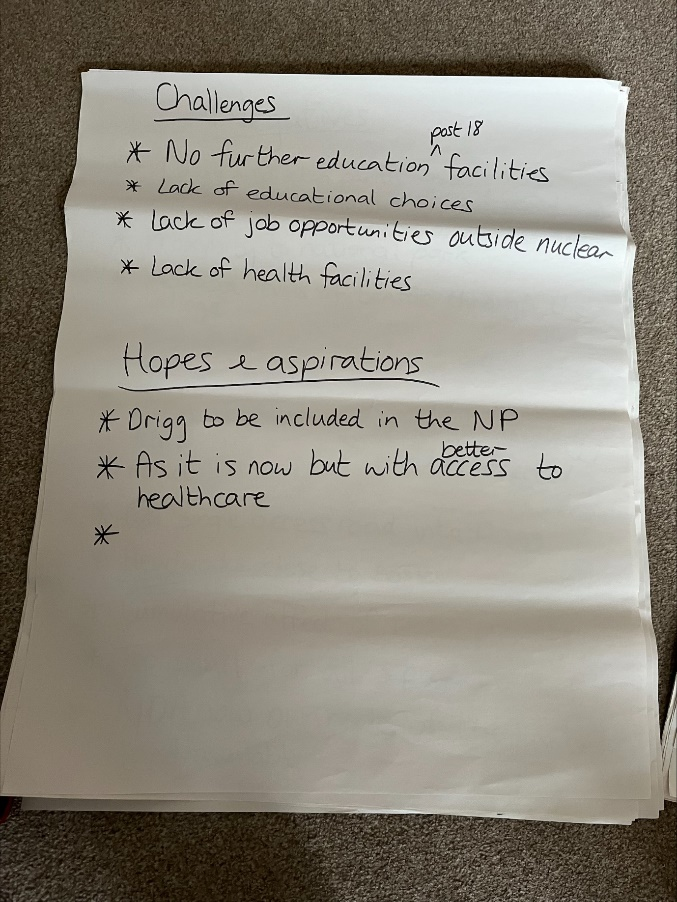 Challenges
post 18
* No further education ^ facilities
* Lack of educational choices
* Lack of job opportunities outside nuclear
* Lack of health facilities
Hopes & aspirations
* Drigg to be included in the NP
better
* As it is now but with access to
healthcare
*